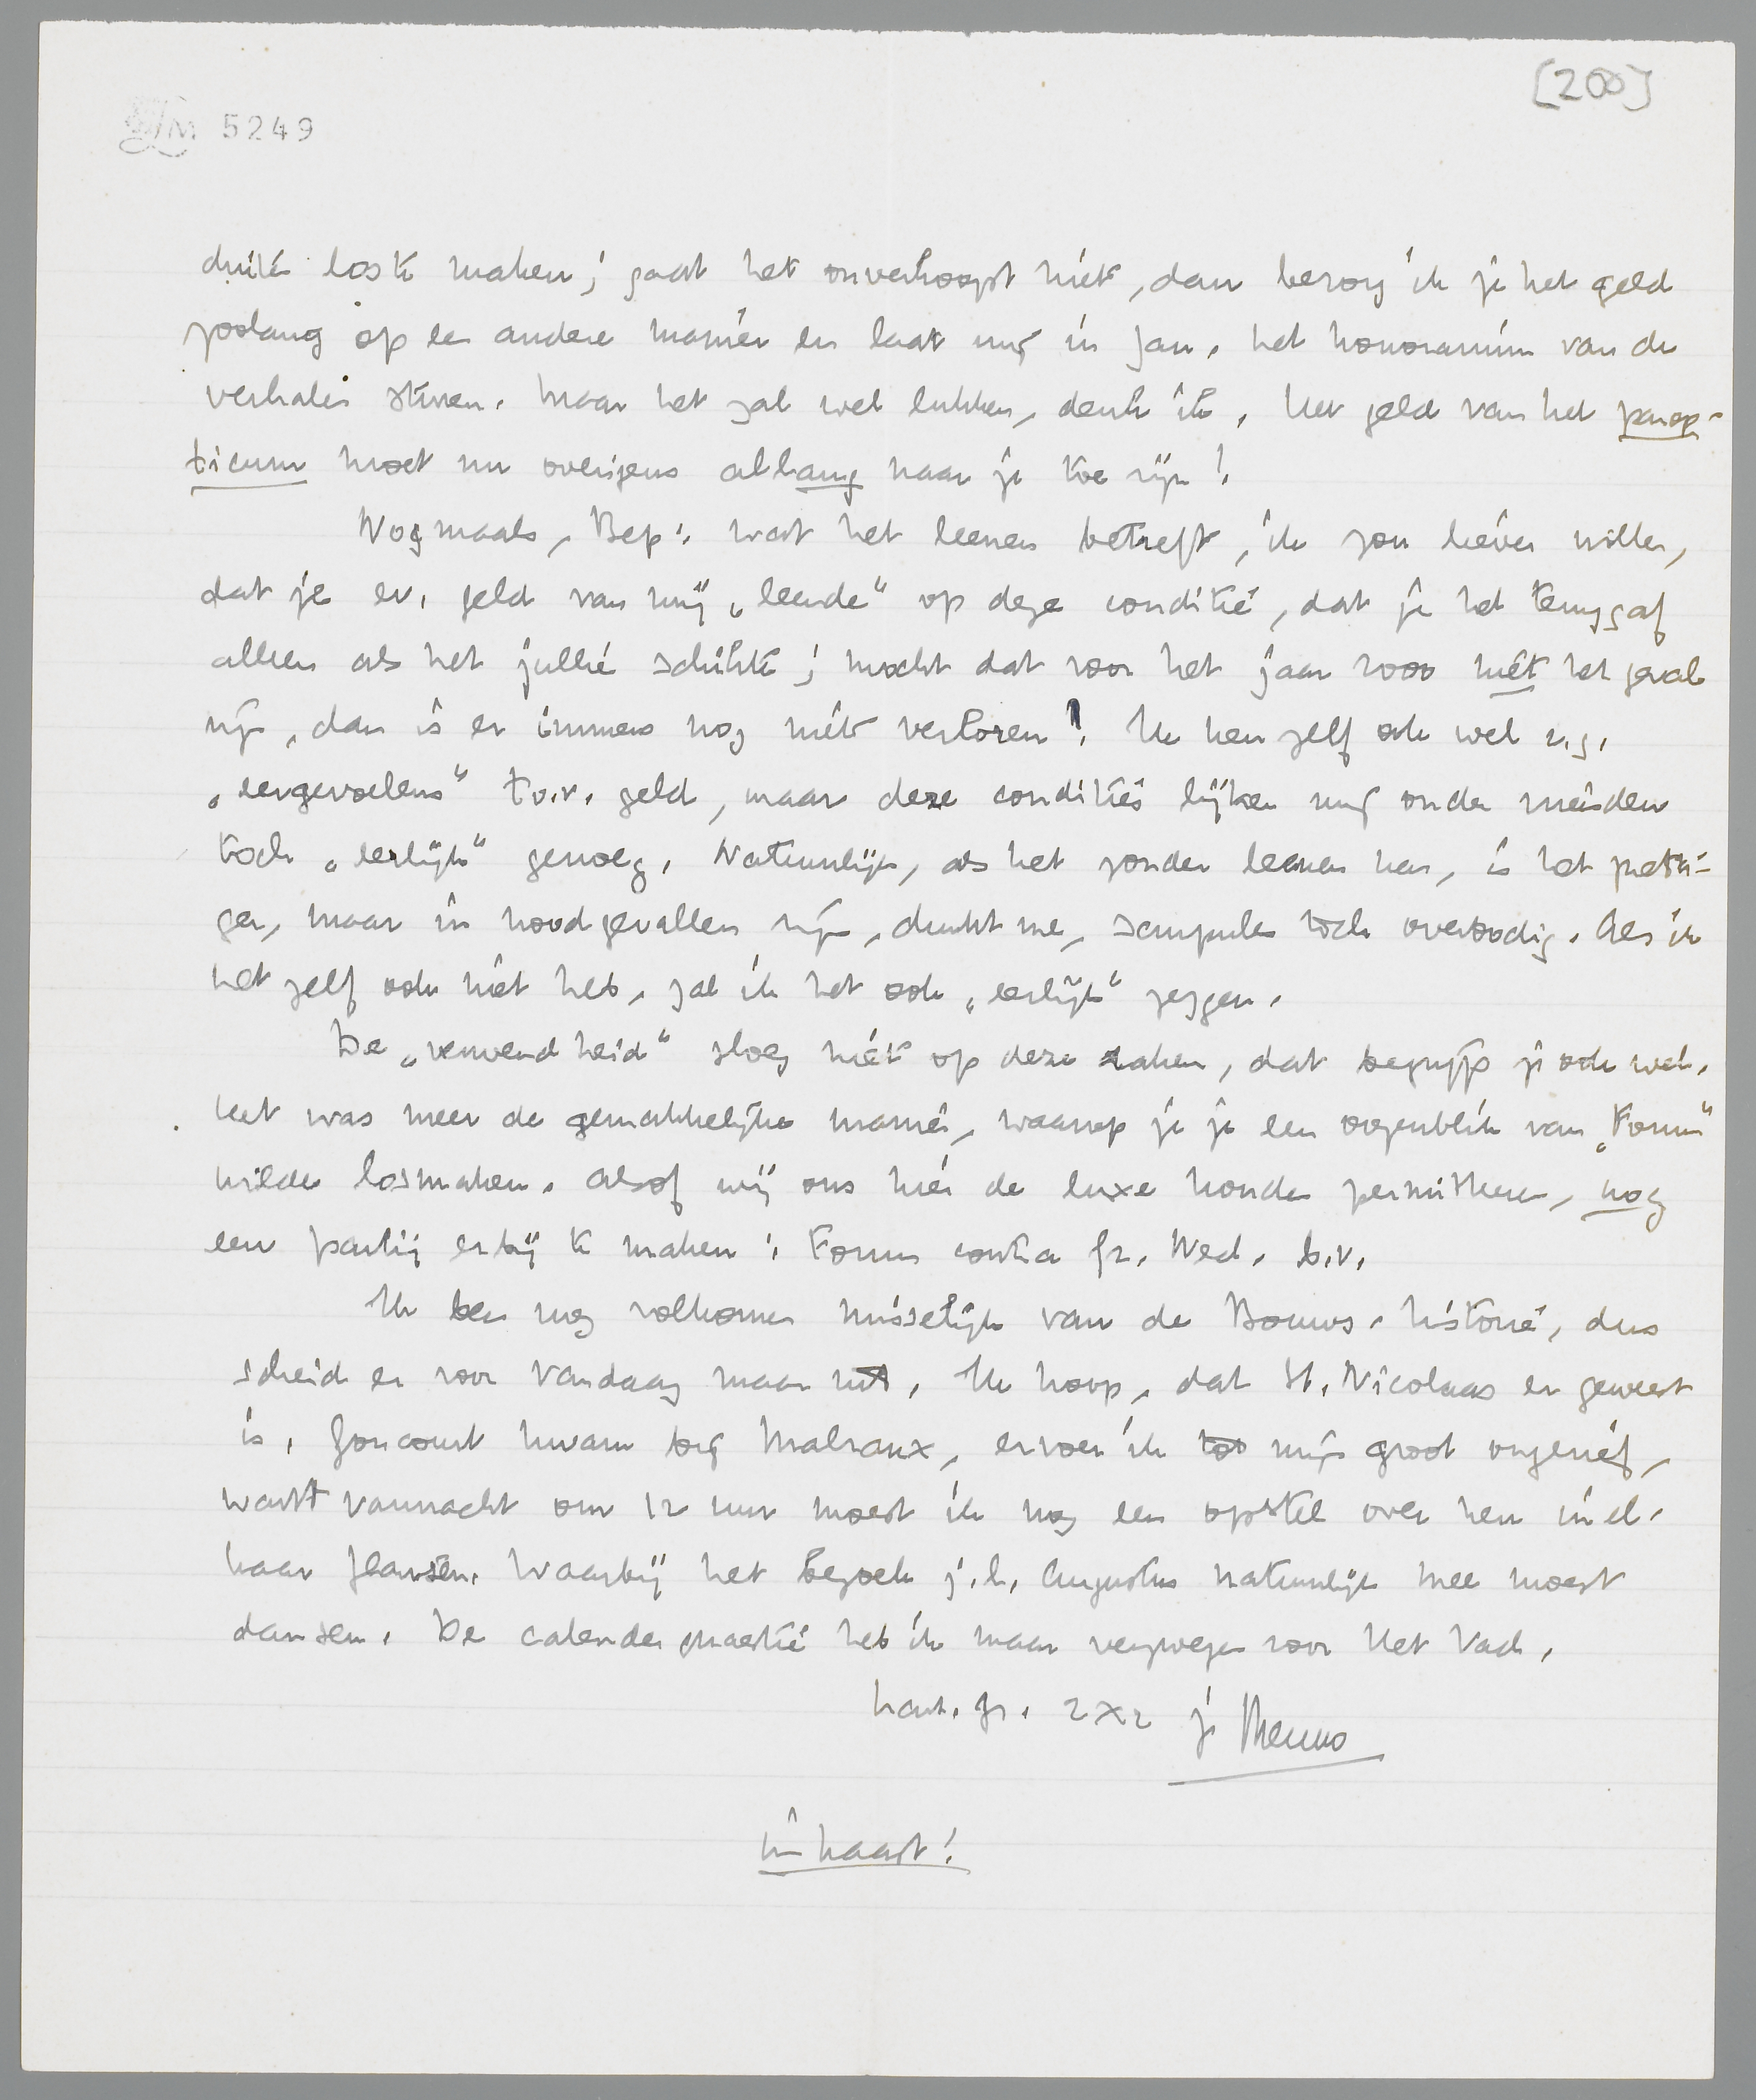 [200]
LM 5249
duiten los te maken; gaat het onverhoopt niet, dan bezorg ik je het geld
zoolang op een andere manier en laat mij in Jan. het honorarium van de
verhalen sturen. Maar het zal wel lukken, denk ik. Het geld van het panop-
ticum moet nu overigens allang naar je toe zijn!
Nogmaals, Bep: wat het leenen betreft, ik zou liever willen,
dat je ev. geld van mij „leende” op deze conditie, dat je het teruggaf
alleen als het jullie schikte; mocht dat voor het jaar 2000 niet het geval
zijn, dan is er immers nog niets verloren! Ik ken zelf ook wel z.g.
„eergevoelens” t.o.v. geld, maar deze condities lijken mij onder vrienden
toch „eerlijk” genoeg. Natuurlijk, als het zonder leenen kan, is het pretti-
ger, maar in noodgevallen zijn, dunkt me, scrupules toch overbodig. Als ik
het zelf ook niet heb, zal ik het ook „eerlijk” zeggen.
De „verwendheid” sloeg niet op deze zaken, dat begrijp je ook wel.
Het was meer de gemakkelijke manier, waarop je je een oogenblik van „Forum”
wilde losmaken. Alsof wij ons hier de luxe konden permitteeren, nog
een partij erbij te maken: Forum contra Gr. Ned. b.v.
Ik ben nog volkomen misselijk van de Bouws-historie, dus
scheid er voor vandaag maar uit. Ik hoop, dat St. Nicolaas er geweest
is. Goncourt kwam bij Malraux, ervoer ik tot mijn groot ongerief,
want vannacht om 12 uur moest ik nog een opstel over hem in el-
kaar flansen. Waarbij het bezoek j.l. Augustus natuurlijk mee moest
dansen. De calenderkwestie heb ik maar verzwegen voor Het Vad.
hart. gr. 2x2 je Menno
in haast!